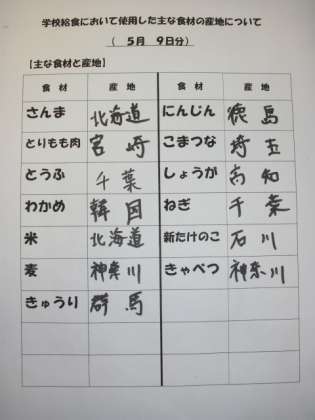 学校給食において使用した主な食材の産地について
( 5月 9日分)
【主な食材と産地】
食材 産地 食材 産地
さんま 北海道 にんじん 徳島
とりもも肉 宮崎 こまつな 埼玉
とうふ 千葉 しょうが 高知
わかめ 韓国 ねぎ 千葉
米 北海道 新たけのこ 石川
麦 神奈川 きゃべつ 神奈川
きゅうり 群馬